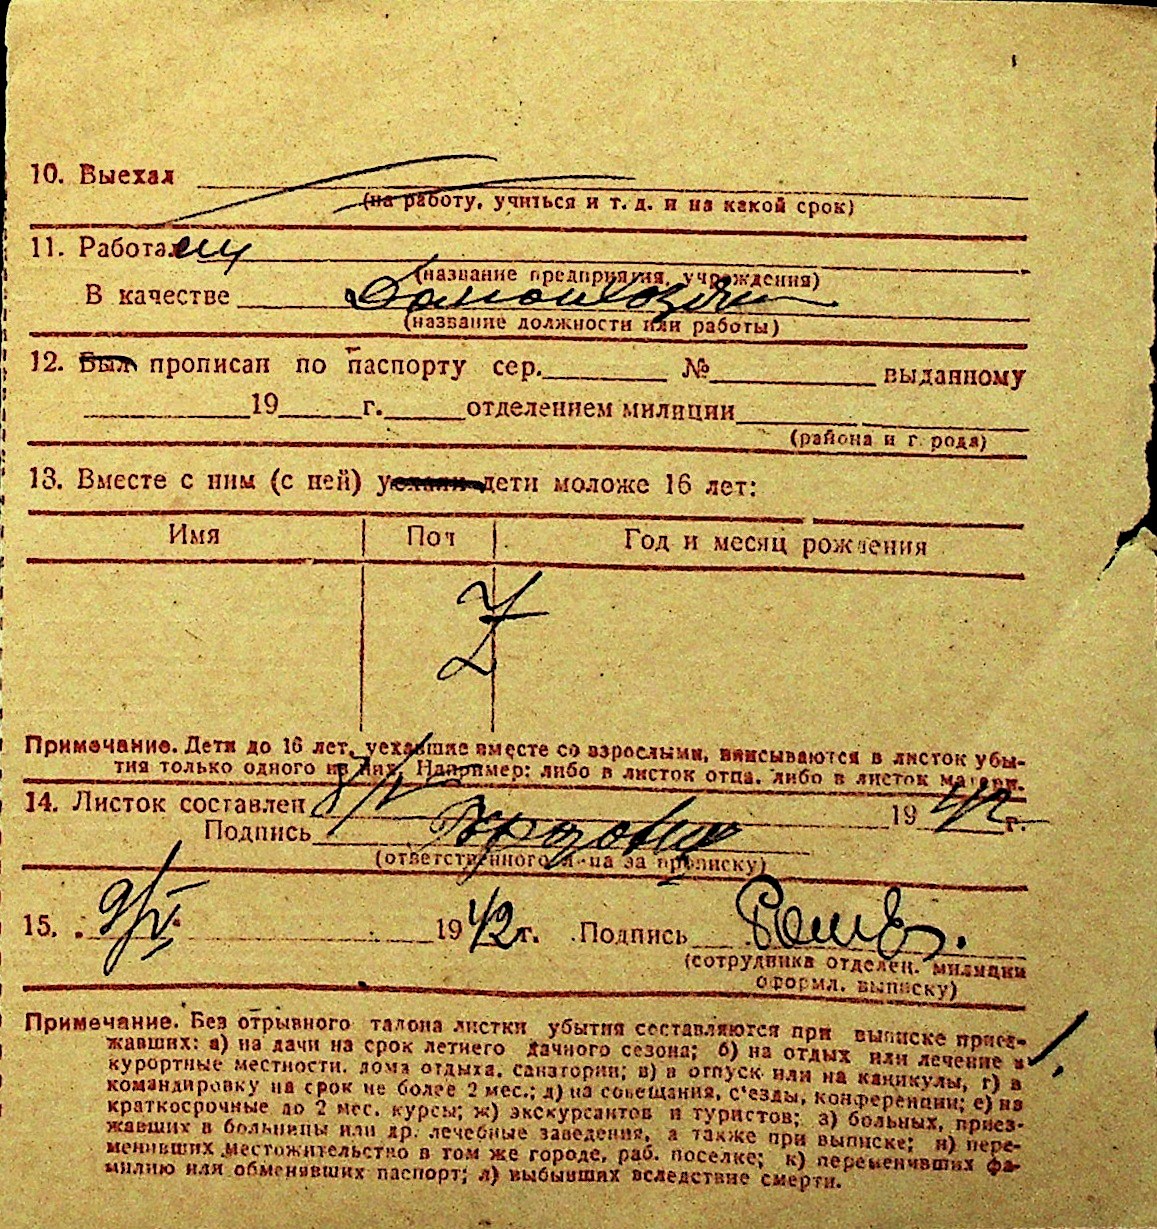 10. Выехал
(на работу, учиться и т. д. и на какой срок)
11. Работа
(название предприятия, учреждения)
В качестве Домохозяйки
(название должности или работы)
12. Был прописан по паспорту сер. № выданному
19 г. отделением милиции
(района и г рода)
13. Вместе с ним (с ней) уехали дети моложе 16 лет:
Имя Пол Год и месяц рождения
Примечание. Дети до 16 лет, уехавшие вместе со взрослыми, вписываются в листок убы-
тия только одного из них. Например: либо в листок отца, либо в листок матери.
14. Листок составлен 8/V 1942 г.
Подпись
(ответственного лица за прописку)
15. 9/V 1942 г. Подпись
(сотрудника отделен. милиции
оформл. выписку)
Примечание. Без отрывного талона листки убытия составляются при выписке приез-
жавших: а) на дачи на срок летнего дачного сезона; б) на отдых или лечение в
курортные местности, дома отдыха, санатории; в) в отпуск или на каникулы, г) в
командировку на срок не более 2 мес.; д) на совещания, с'езды, конференции; е) на
краткосрочные до 2 мес. курсы; ж) экскурсантов и туристов; з) больных, приез-
жавших в больницы или др. лечебные заведения, а также при выписке; и) пере-
менивших местожительство в том же городе, раб. поселке; к) переменивших фа-
милию или обменявших паспорт; л) выбывших вследствие смерти.